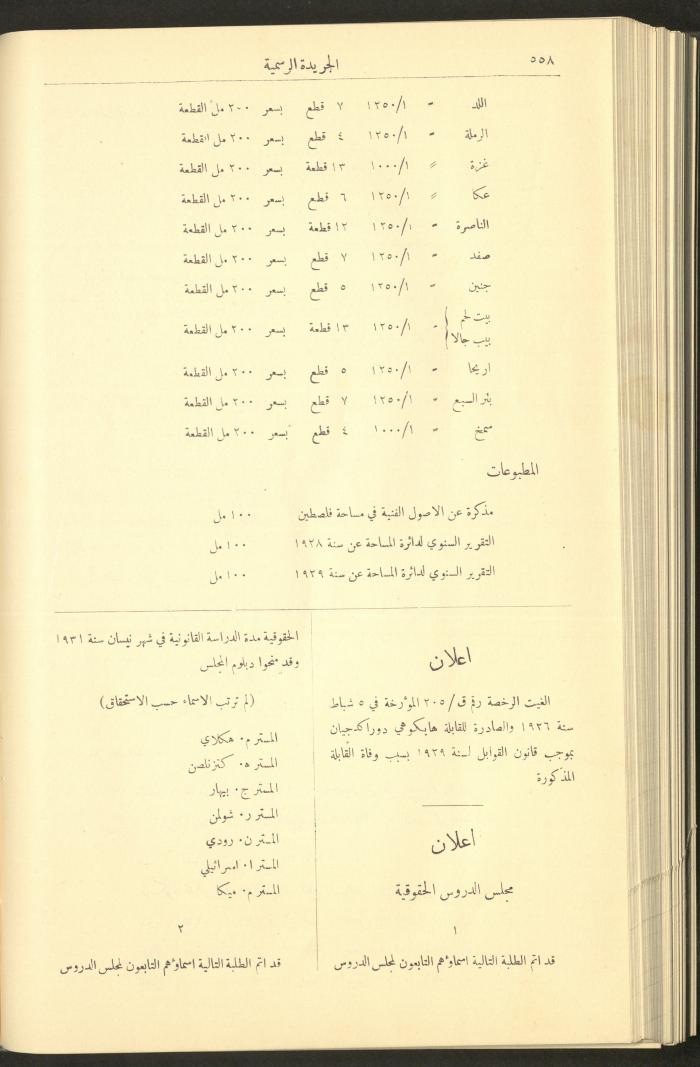 ٥٥٨
الجريدة الرسمية
اللد - ١/‏١٢٥٠ ٧ قطع بسعر ٢٠٠ مل القطعة
الرملة - ١/‏١٢٥٠ ٤ قطع بسعر ٢٠٠ مل القطعة
غزة " ١/‏١٠٠٠ ١٣ قطعة بسعر ٢٠٠ مل القطعة
عكا " ١/‏١٢٥٠ ٦ قطع بسعر ٢٠٠ مل القطعة
الناصرة - ١/‏١٢٥٠ ١٢ قطعة بسعر ٢٠٠ مل القطعة
صفد - ١/‏١٢٥٠ ٧ قطع بسعر ٢٠٠ مل القطعة
جنين - ١/‏١٢٥٠ ٥ قطع بسعر ٢٠٠ مل القطعة
بيت لحم
بيب جالا - ١/‏١٢٥٠ ١٣ قطعة بسعر ٢٠٠ مل القطعة
اريحا - ١/‏١٢٥٠ ٥ قطع بسعر ٢٠٠ مل القطعة
بئر السبع - ١/‏١٢٥٠ ٧ قطع بسعر ٢٠٠ مل القطعة
سمخ - ١/‏١٠٠٠ ٤ قطع بسعر ٢٠٠ مل القطعة
المطبوعات
مذكرة عن الاصول الفنية في مساحة فلسطين ١٠٠ مل
التقرير السنوي لدائرة المساحة عن سنة ١٩٢٨ ١٠٠ مل
التقرير السنوي لدائرة المساحة عن سنة ١٩٢٩ ١٠٠ مل
اعلان
الغيت الرخصة رقم ق/٢٠٥ المؤرخة في ٥ شباط
سنة ١٩٢٦ والصادرة للقابلة هايكوهي دوراكدجيان
بموجب قانون القوابل لسنة ١٩٢٩ بسبب وفاة القابلة
المذكورة
اعلان
مجلس الدروس الحقوقية
١
قد اتم الطلبة التالية اسماؤهم التابعون لمجلس الدروس
الحقوقية مدة الدراسة القانونية في شهر نيسان سنة ١٩٣١
وقد منحوا دبلوم المجلس
(لم ترتب الاسماء حسب الاستحقاق)
المستر م. هكلاي
المستر ه. كتزنلصن
المستر ج. بيهار
المستر ر. شولمن
المستر ن. رودي
المستر ا. اسرائيلي
المستر م. ميكا
٢
قد اتم الطلبة التالية اسماؤهم التابعون لمجلس الدروس